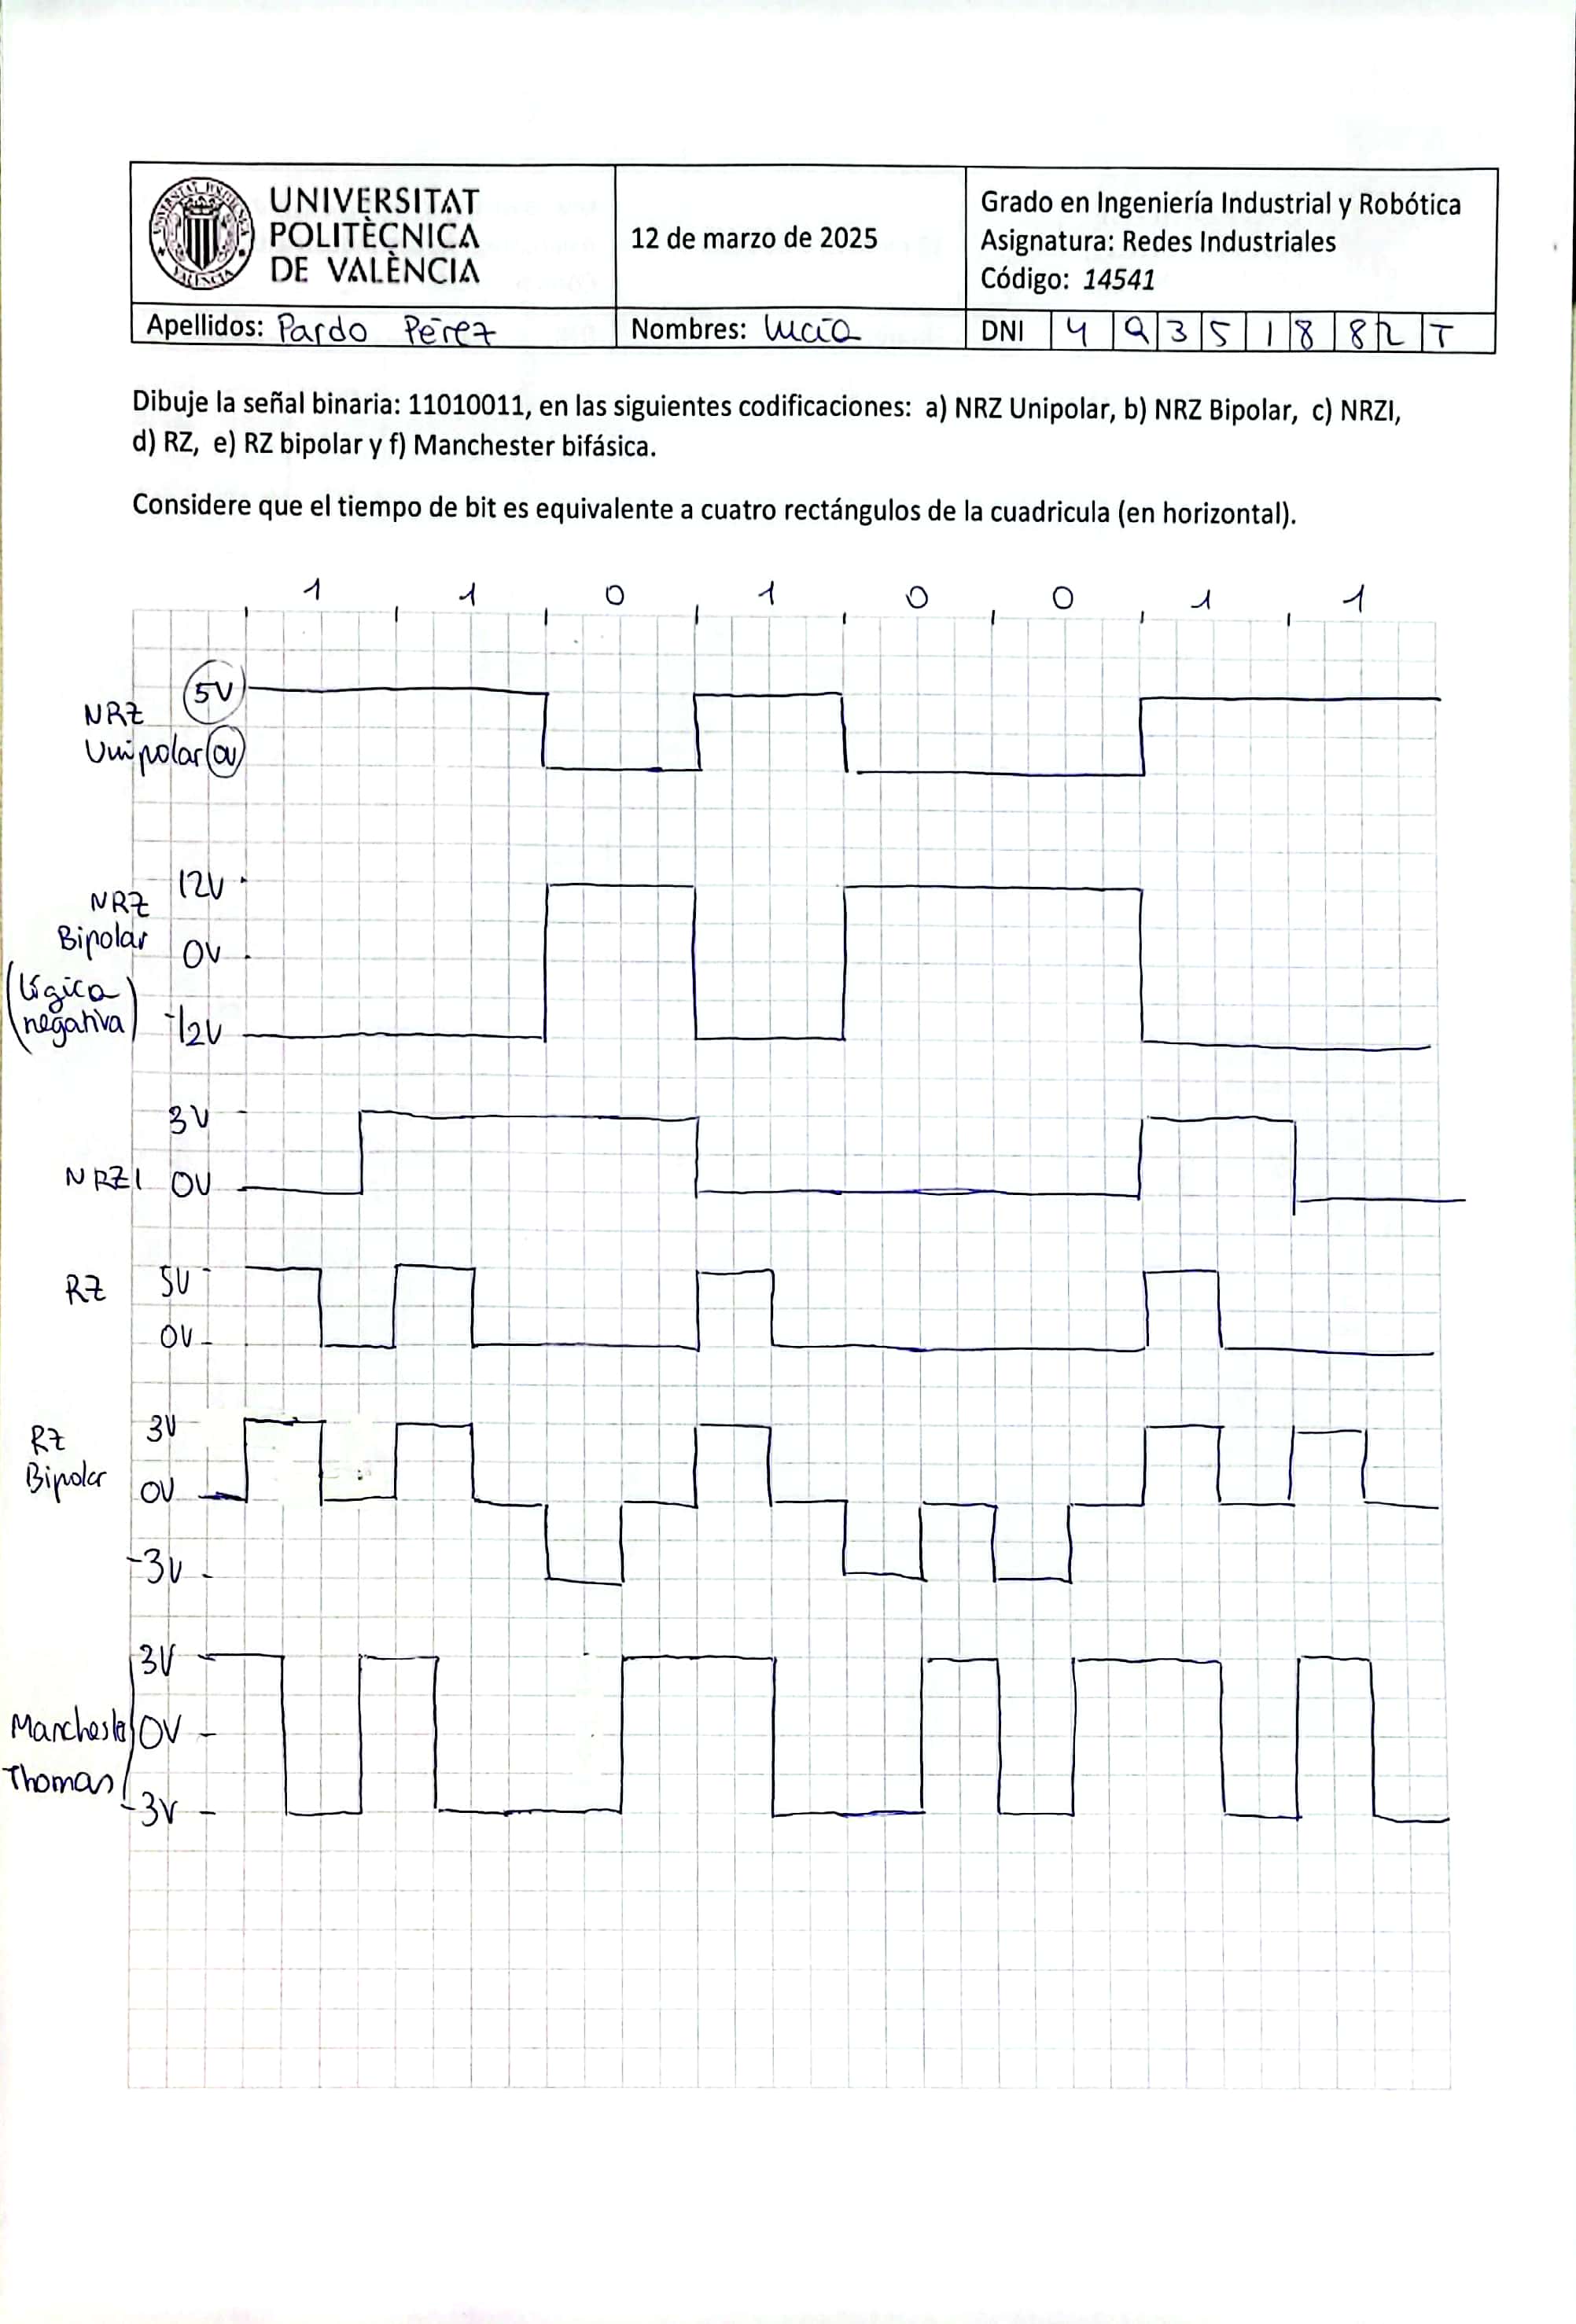 UNIVERSITAT
POLITÈCNICA
DE VALÈNCIA
12 de marzo de 2025
Grado en Ingeniería Industrial y Robótica
Asignatura: Redes Industriales
Código: 14541
Apellidos: Pardo Pérez
Nombres: Lucía
DNI 4 9 3 5 1 8 8 2 T
Dibuje la señal binaria: 11010011, en las siguientes codificaciones: a) NRZ Unipolar, b) NRZ Bipolar, c) NRZI,
d) RZ, e) RZ bipolar y f) Manchester bifásica.
Considere que el tiempo de bit es equivalente a cuatro rectángulos de la cuadricula (en horizontal).
1 1 0 1 0 0 1 1
5V
NRZ
Unipolar 0V
12V
NRZ
Bipolar
0V
(lógica
negativa)
-12V
3V
NRZI 0V
RZ 5V
0V
3V
RZ
Bipolar
0V
-3V
3V
Manchester 0V
Thomas
-3V